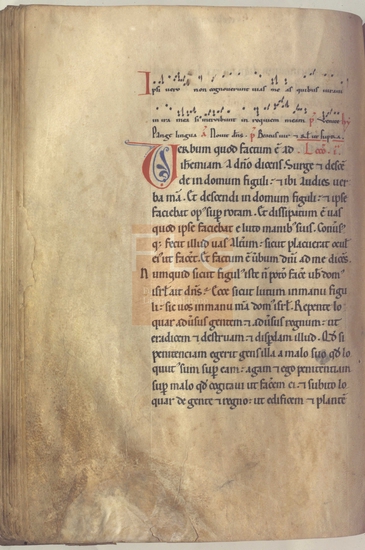 Ipsi vero non cognoverunt vias me as quibus iuravi
in ira mea si introibunt in requiem meam
Pange lingua
Verbum quod factum ē ad
iheremiam a dño dicens. Surge ⁊ descē
de in domum figuli: ⁊ ibi audies ver
ba mā. Et descendi in domum figuli: ⁊ ipse
faciebat op' sup rotam. Et dissipatum ē vas
quod ipse faciebat e luto manib' suis.
q; fecit illud vas alterum: sicut placuerat ocul'
ei' ut facēt. Et factum ē ūbum dñi ad me dicēs.
Numquid sicut figul' iste ñ potō facē ub dom'
isrl' ait dñs: Ecce sicut lutum in manu figu
li: sic vos in manu mā dom' isrl'. Repente lo
quar adūsus gentem ⁊ adūsus regnum: ut
eradicem ⁊ destruam ⁊ disp̄dam illud. Si
penitenciam egerit gens illa a malo suo qđ lo
quut' sum sup eam: agam ⁊ ego penitenciam
sup malo qđ cogitavi ut facēm ei: ⁊ subito lo
quar de gente ⁊ regno: ut edificem ⁊ plantē